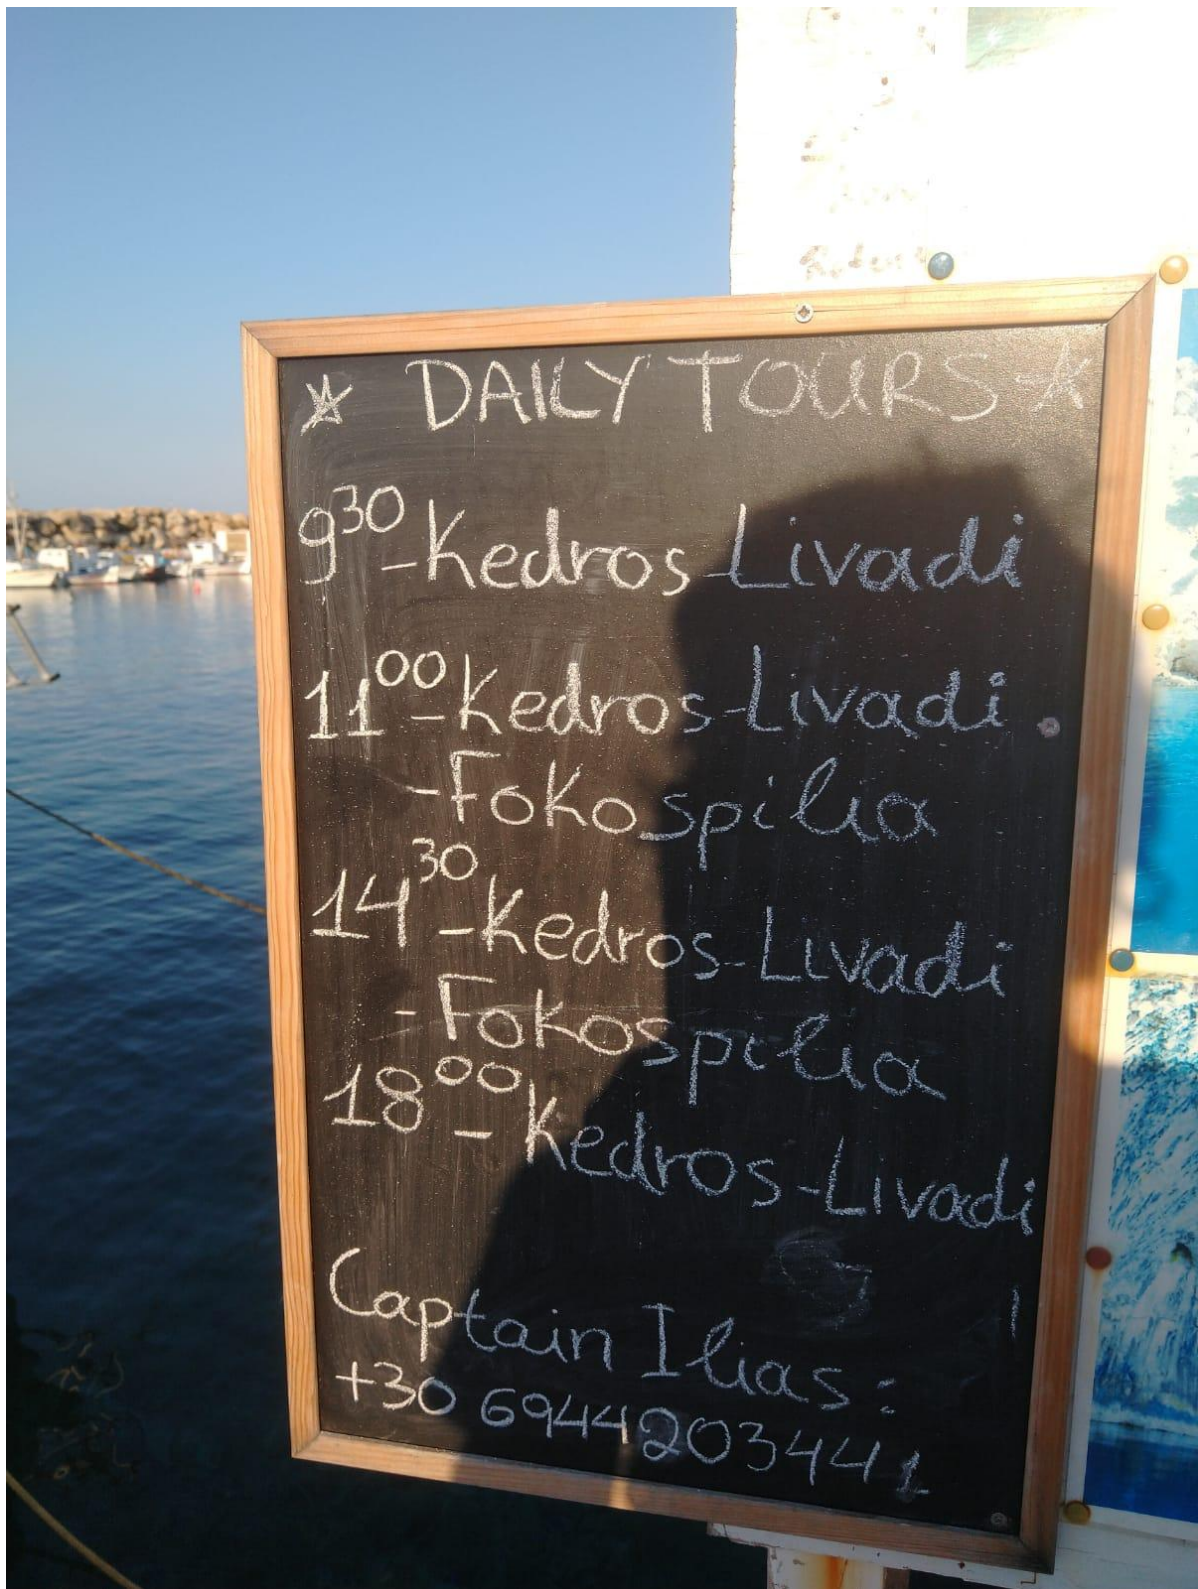 ☆ DAILY TOURS ☆
9³⁰-Kedros-Livadi
11⁰⁰-Kedros-Livadi
-Fokospilia
14³⁰-Kedros-Livadi
-Fokospilia
18⁰⁰-Kedros-Livadi
Captain Ilias:
+30 6944203441